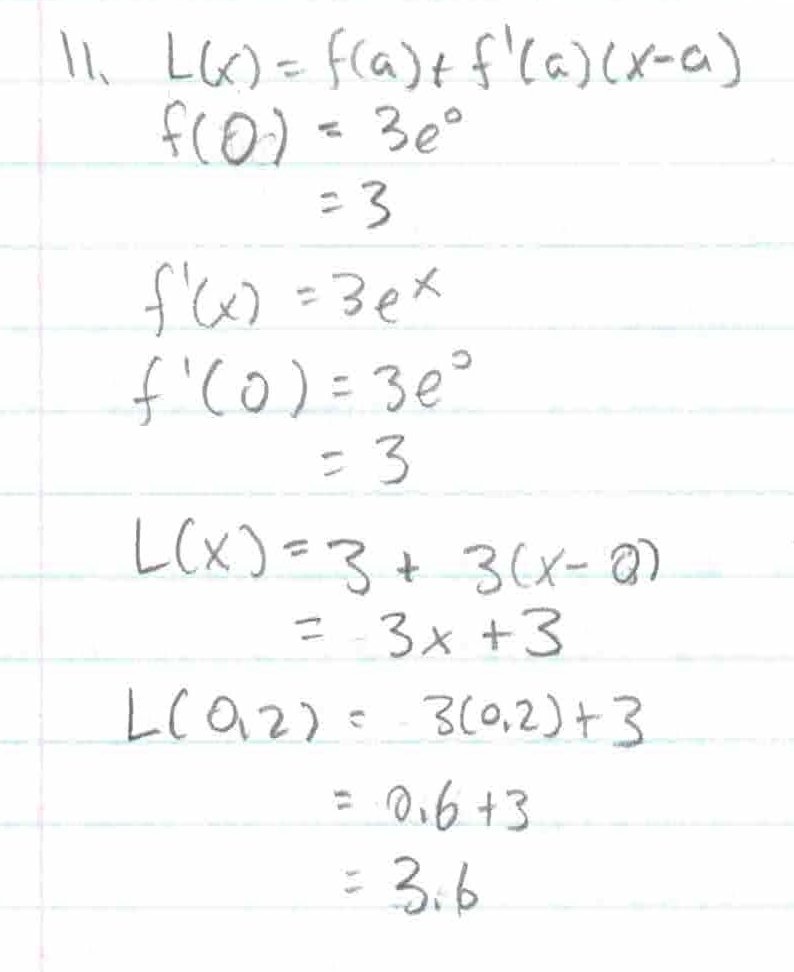 11. L(x) = f(a) + f'(a)(x-a)
f(0) = 3e⁰
= 3
f'(x) = 3eˣ
f'(0) = 3e⁰
= 3
L(x) = 3 + 3(x-0)
= 3x + 3
L(0.2) = 3(0.2) + 3
= 0.6 + 3
= 3.6